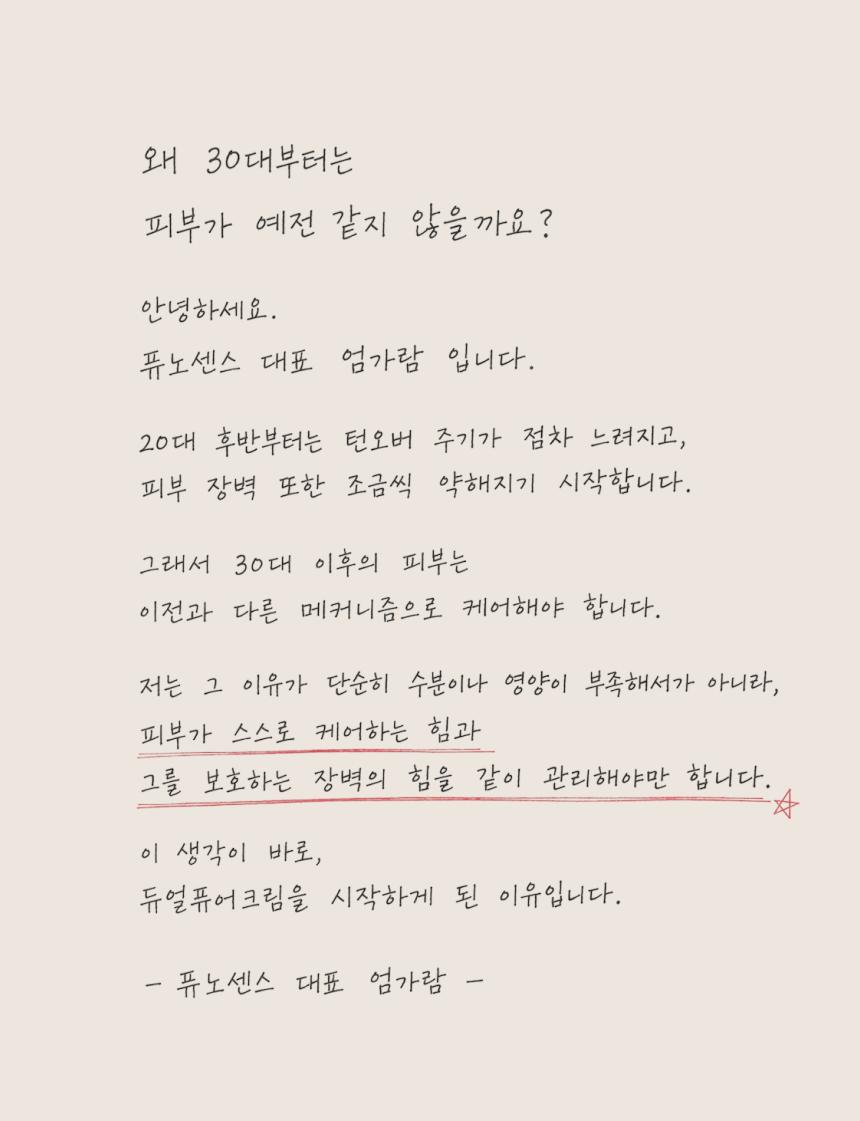 왜 30대부터는
피부가 예전 같지 않을까요?
안녕하세요.
퓨노센스 대표 엄가람 입니다.
20대 후반부터는 턴오버 주기가 점차 느려지고,
피부 장벽 또한 조금씩 약해지기 시작합니다.
그래서 30대 이후의 피부는
이전과 다른 메커니즘으로 케어해야 합니다.
저는 그 이유가 단순히 수분이나 영양이 부족해서가 아니라,
피부가 스스로 케어하는 힘과
그를 보호하는 장벽의 힘을 같이 관리해야만 합니다.
이 생각이 바로,
듀얼퓨어크림을 시작하게 된 이유입니다.
- 퓨노센스 대표 엄가람 -